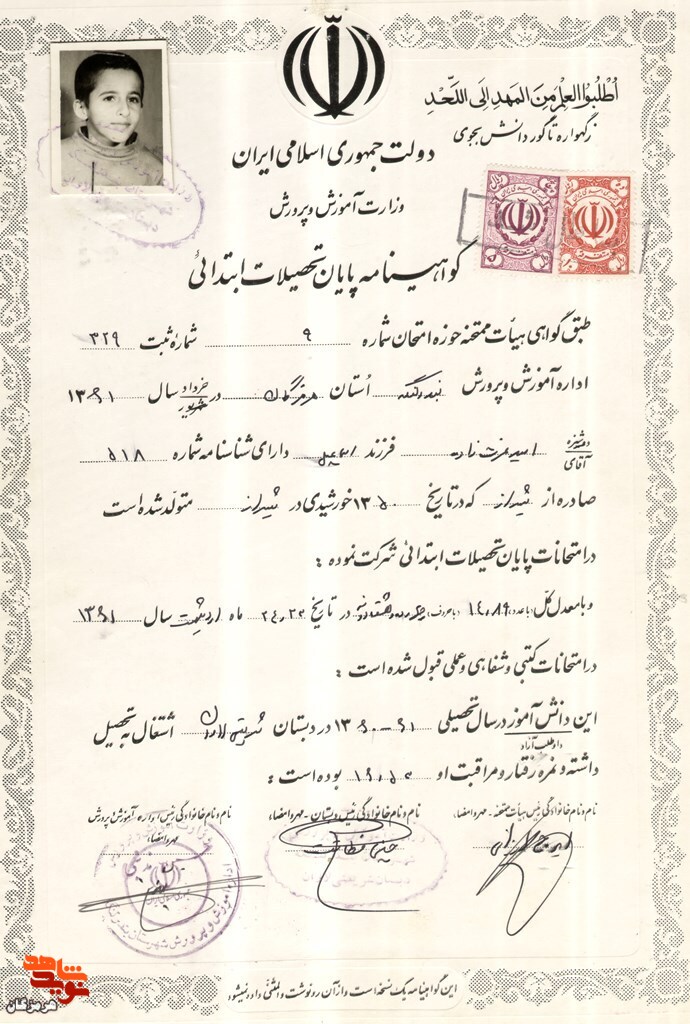 اُطْلُبُوا العِلْمَ مِنَ المَهدِ اِلَى اللَّحَدِ
زگهواره تا گور دانش بجوی
دولت جمهوری اسلامی ایران
وزارت آموزش و پرورش
گواهینامه پایان تحصیلات ابتدائی
طبق گواهی هیأت ممتحنه حوزه امتحان شماره ۹ شماره ثبت ۳۲۹
اداره آموزش و پرورش استان هرمزگان در خرداد شهریور سال ۱۳۶۱
دوشیزه آقای فرزند دارای شناسنامه شماره ۵۱۸
صادره از شیراز که در تاریخ ۱۳۵۰ خورشیدی در شیراز متولد شده است
در امتحانات پایان تحصیلات ابتدائی شرکت نموده :
و با معدل کل (با عدد) ۱۴/۸۹ (با حروف) در تاریخ ۲۴،۲۲ ماه اردیبهشت سال ۱۳۶۱
در امتحانات کتبی و شفاهی و عملی قبول شده است :
این دانش آموز داوطلب آزاد در سال تحصیلی ۶۱-۱۳۶۰ در دبستان اشتغال به تحصیل
داشته و نمره رفتار و مراقبت او بوده است :
نام و نام خانوادگی رئیس هیأت ممتحنه - مهر و امضاء،
نام و نام خانوادگی رئیس دبستان - مهر و امضاء،
نام و نام خانوادگی رئیس اداره آموزش و پرورش
مهر و امضاء،
این گواهینامه یک نسخه است و از آن رونوشت و المثنی داده نمیشود
نوید شاهد
هرمزگان